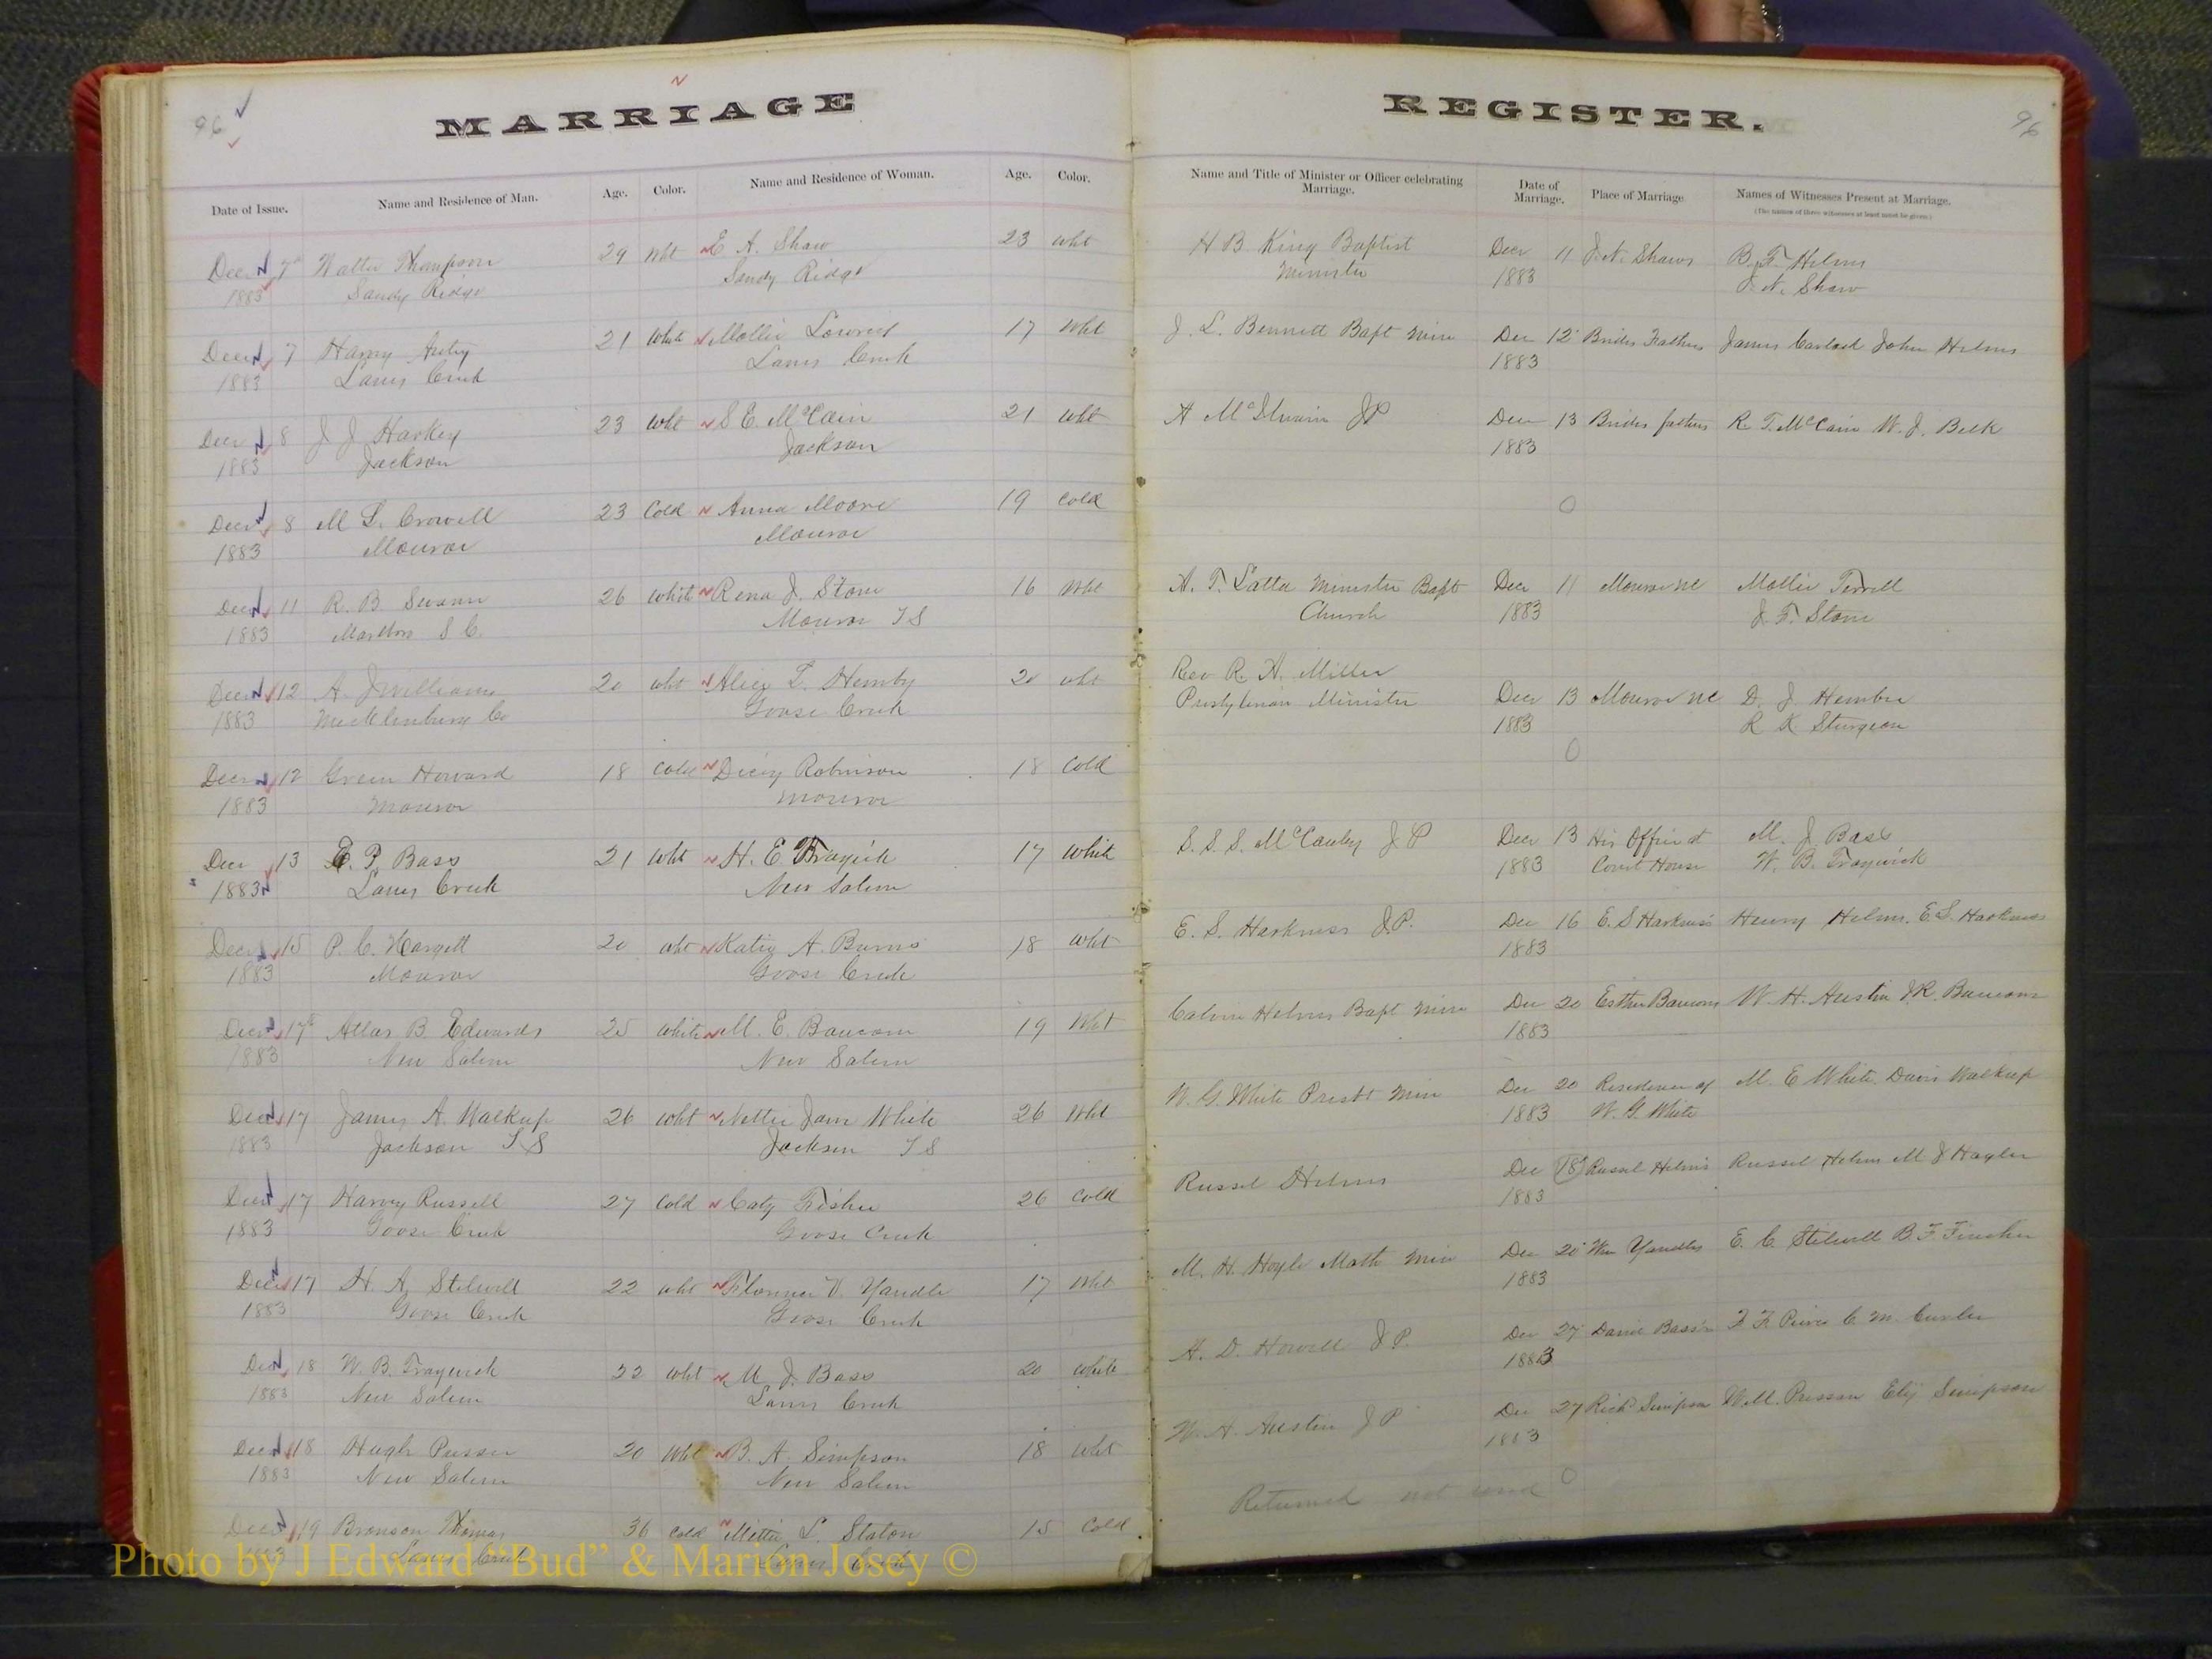 96
MARRIAGE REGISTER.
96
Date of Issue. Name and Residence of Man. Age. Color. Name and Residence of Woman. Age. Color. Name and Title of Minister or Officer celebrating Marriage. Date of Marriage. Place of Marriage Names of Witnesses Present at Marriage.
(The names of three witnesses at least must be given.)
Dec 7 Walter Thompson 29 Wht E A. Shaw 23 Wht H B. King Baptist Decr 11 J. N. Shaws B. F. Helms
1883 Sandy Ridge Sandy Ridge Minister 1883 J. N. Shaw
Decr 7 Harry 21 White Mollie 17 Wht J. L. Bennett Bapt Min Dec 12 Brides Fathers James John Helms
1883 Lanes Creek Lanes Creek 1883
Decr 8 J J Harkey 23 Wht S E. McCain 21 Wht A McIlwain JP Dec 13 Brides fathers R. T. McCain W. J. Belk
1883 Jackson Jackson 1883
Decr 8 M L. Crowell 23 Cold Anna Moore 19 Cold
1883 Monroe Monroe
Decr 11 R. B Swann 26 White Rena J. Stone 16 Wht A. T. Latta Minister Bapt Decr 11 Monroe NC Mollie Terrell
1883 S C. Monroe T S Church 1883 J. T. Stone
Decr 12 A. J Williams 20 Wht Alice L. Hemby 20 Wht Rev R. A. Miller Decr 13 Monroe NC D. J Hembre
1883 Mecklenburg Co Goose Creek Presbyterian Minister 1883 R K Sturgeon
Decr 12 Green Howard 18 Cold Dicey Robinson 18 Cold
1883 Monroe Monroe
Decr 13 E. P. Bass 21 Wht H. E Traywick 17 White S. S. S. McCauley J P Decr 13 His Office at M. J. Bass
1883 Lanes Creek New Salem 1883 Court House W. B. Traywick
Decr 15 P. C. Hargett 20 Wht Katie A. Burns 18 Wht E. S. Harkness J.P. Dec 16 E. S Harkness Henry Helms. E S. Harkness
1883 Monroe Goose Creek 1883
Decr 17 Atlas B. Edwards 25 White M. E. Baucom 19 Wht Calvin Helms Bapt Min Dec 20 Esther Baucoms W. H. Austin J. R. Baucom
1883 New Salem New Salem 1883
Decr 17 James A. Walkup 26 Wht Nettie Jane White 26 Wht W. G. White Presbt Min Dec 20 Residence of M. E White, Davis Walkup
1883 Jackson T S Jackson T S 1883 W. G. White
Decr 17 Harvey Russell 27 Cold Caty Fisher 26 Cold Russel Helms Dec 18 Russel Helms Russel Helms M J Hagler
1883 Goose Creek Goose Creek 1883
Decr 17 H. A. Stilwell 22 Wht V. Yandle 17 Wht M. H. Hoyle Meth Min Dec 20 Wm Yandles E. C. Stilwell B. F. Fincher
1883 Goose Creek Goose Creek 1883
Decr 18 W. B. Traywick 22 Wht M J. Bass 20 White A. D. Howell J P. Dec 27 Bass C. M.
1883 New Salem Lanes Creek 1883
Decr 18 Hugh 20 Wht B. A. Simpson 18 Wht W. H. Austin J P Dec 27 Richd Simpson Simpson
1883 New Salem New Salem 1883
Decr 19 Bronson Thomas 36 Cold L. Staton 15 Cold Returned not used
1883 Lanes Creek Lanes Creek
Photo by J Edward “Bud” & Marion Josey ©